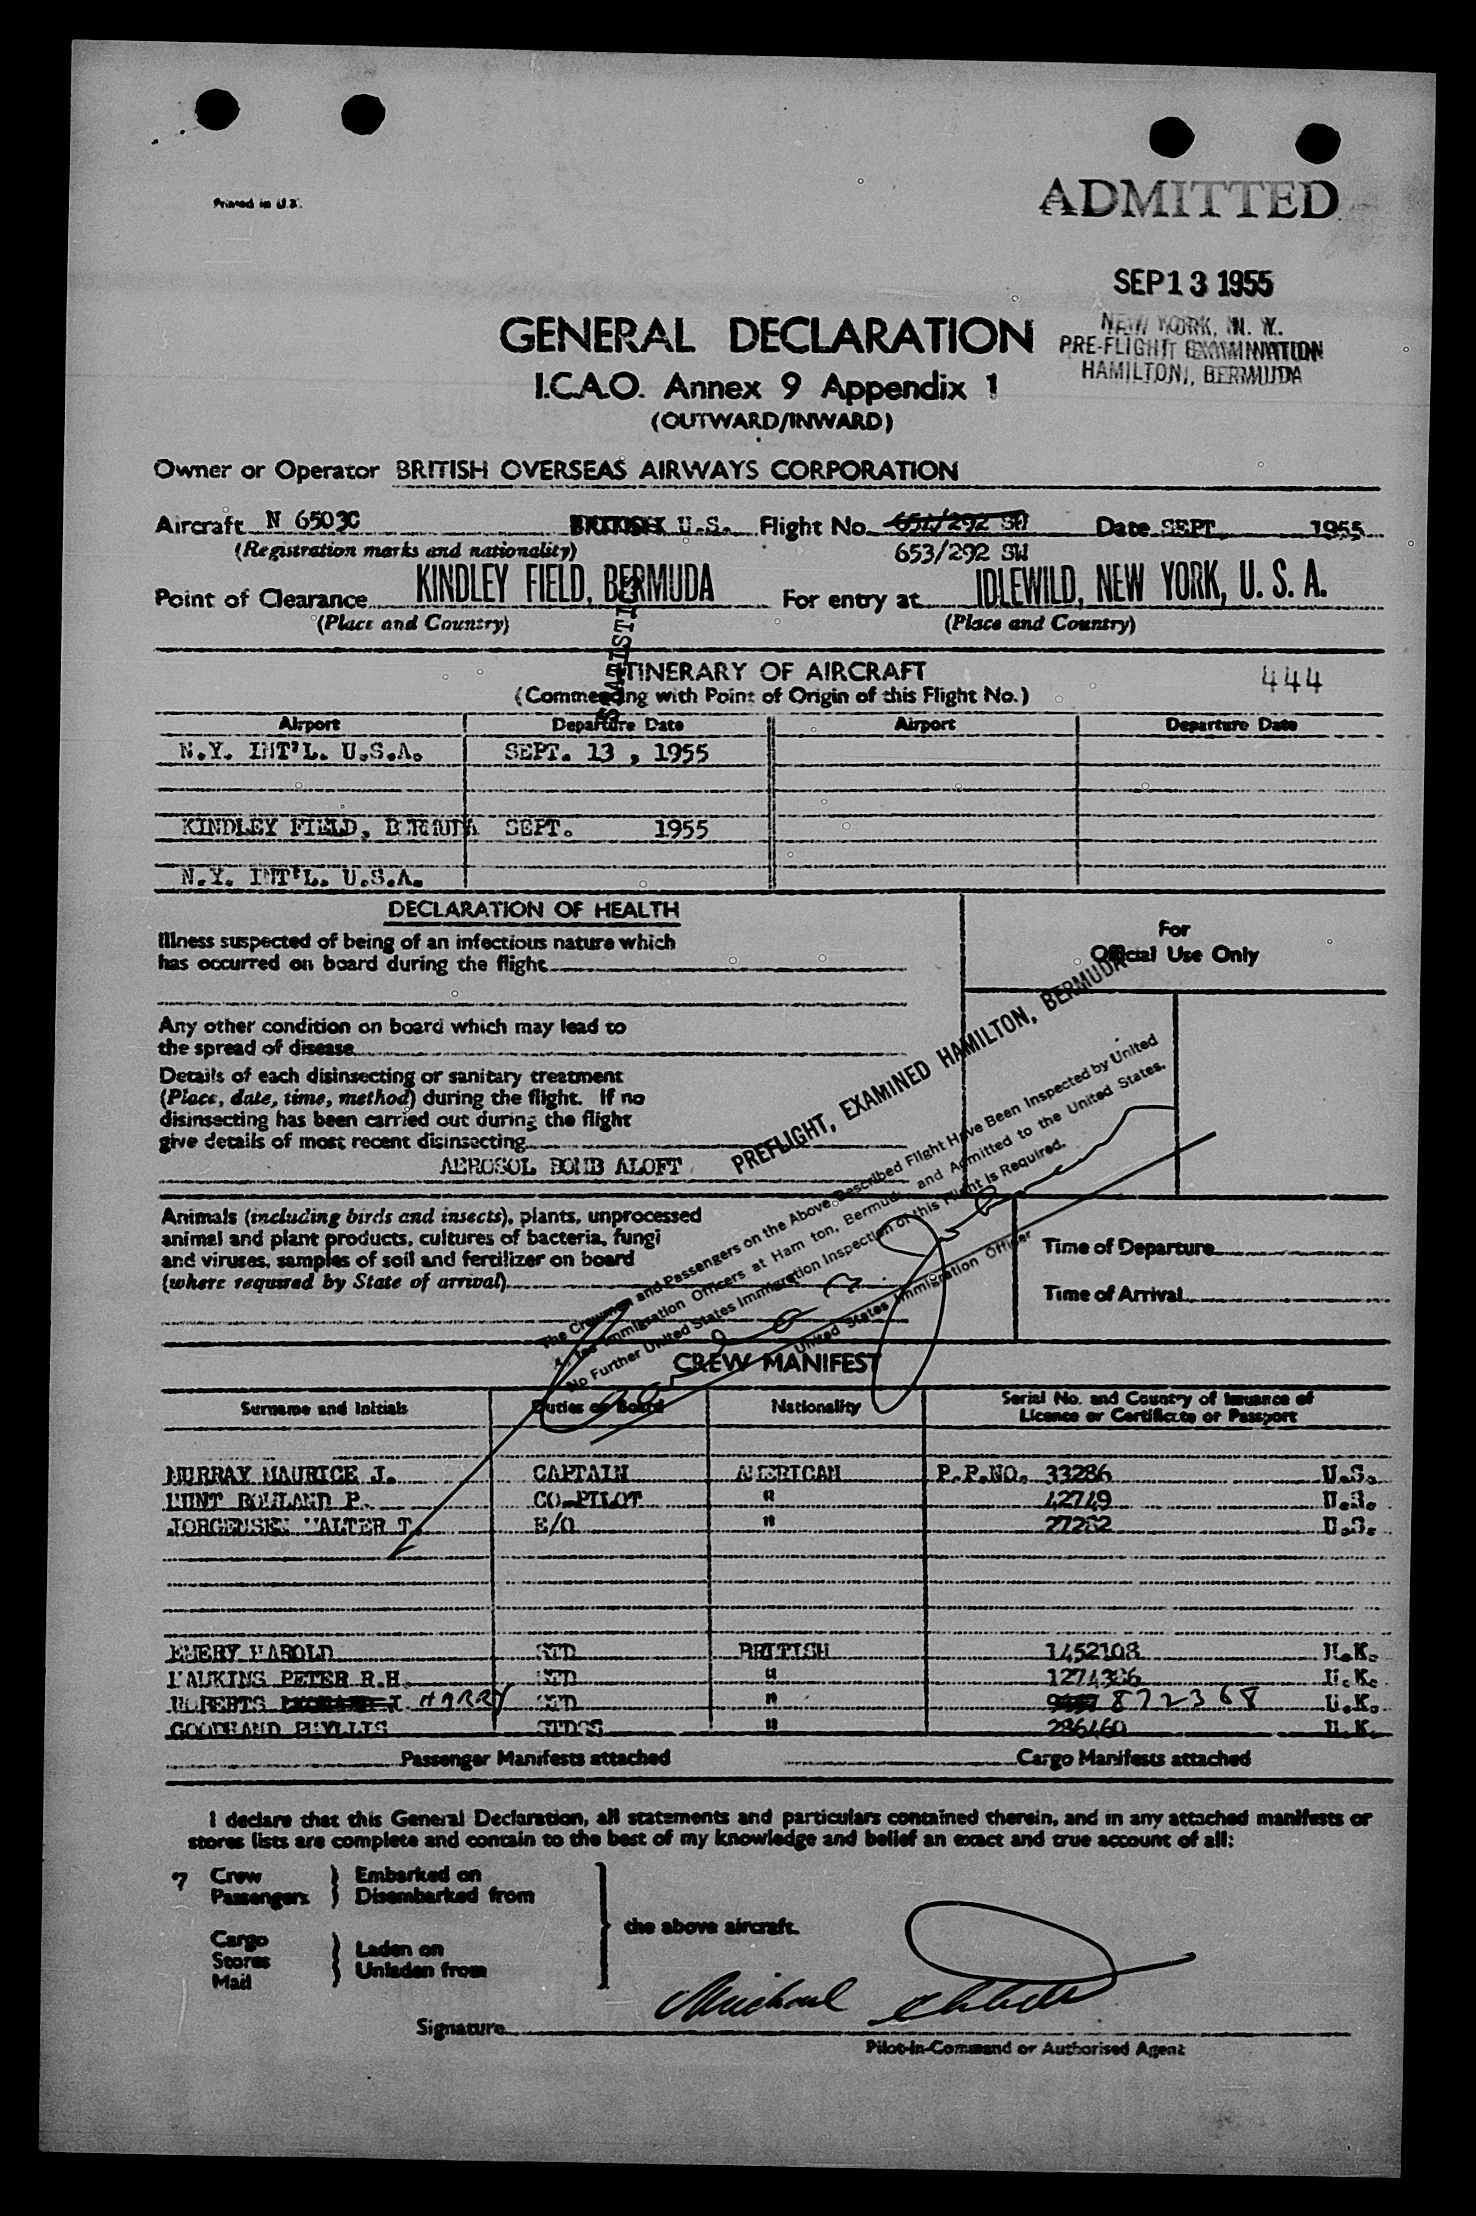 Printed in U.K.
ADMITTED
SEP 13 1955
NEW YORK, N. Y.
PRE-FLIGHT EXAMINATION
HAMILTON, BERMUDA
GENERAL DECLARATION
I.C.A.O. Annex 9 Appendix 1
(OUTWARD/INWARD)
Owner or Operator BRITISH OVERSEAS AIRWAYS CORPORATION
Aircraft N 6503C BRITISH U.S. Flight No. 651/292 SW Date SEPT. 1955
(Registration marks and nationality) 653/292 SW
Point of Clearance KINDLEY FIELD, BERMUDA For entry at IDLEWILD, NEW YORK, U. S. A.
(Place and Country) (Place and Country)
STATISTICS
ITINERARY OF AIRCRAFT 444
(Commencing with Point of Origin of this Flight No.)
Airport Departure Date Airport Departure Date
N.Y. INT'L. U.S.A. SEPT. 13 , 1955
KINDLEY FIELD, BERMUDA SEPT. 1955
N.Y. INT'L. U.S.A.
DECLARATION OF HEALTH
For
Official Use Only
Illness suspected of being of an infectious nature which
has occurred on board during the flight
Any other condition on board which may lead to
the spread of disease
Details of each disinsecting or sanitary treatment
(Place, date, time, method) during the flight. If no
disinsecting has been carried out during the flight
give details of most recent disinsecting
AEROSOL BOMB ALOFT
PREFLIGHT, EXAMINED HAMILTON, BERMUDA
The Crewmen and Passengers on the Above Described Flight Have Been Inspected by United
States Immigration Officers at Hamilton, Bermuda and Admitted to the United States.
No Further United States Immigration Inspection of this Flight is Required.
United States Immigration Officer
Animals (including birds and insects), plants, unprocessed
animal and plant products, cultures of bacteria, fungi
and viruses, samples of soil and fertilizer on board
(where required by State of arrival)
Time of Departure
Time of Arrival
CREW MANIFEST
Surname and Initials Duties on Board Nationality Serial No. and Country of Issuance of
Licence or Certificate or Passport
MURRAY MAURICE J. CAPTAIN AMERICAN P.P.NO. 33286 U.S.
HUNT ROWLAND P. CO-PILOT " 42749 U.S.
JORGENSEN WALTER T. E/O " 27282 U.S.
EMERY HAROLD STD BRITISH 1452108 U.K.
HAWKINS PETER R.H. STD " 1274386 U.K.
ROBERTS HARRY STD " 872368 U.K.
GOODHAND PHYLLIS STDSS " 286460 U.K.
Passenger Manifests attached Cargo Manifests attached
I declare that this General Declaration, all statements and particulars contained therein, and in any attached manifests or
stores lists are complete and contain to the best of my knowledge and belief an exact and true account of all:
7 Crew } Embarked on
Passengers } Disembarked from
the above aircraft.
Cargo
Stores } Laden on
Mail } Unladen from
Signature Michael
Pilot-in-Command or Authorised Agent